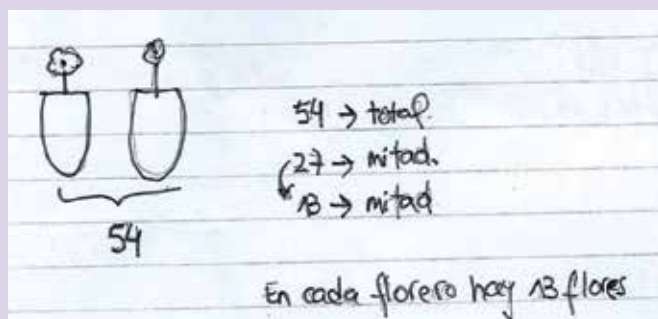 54
54 → total.
27 → mitad.
13 → mitad
En cada florero hay 13 flores